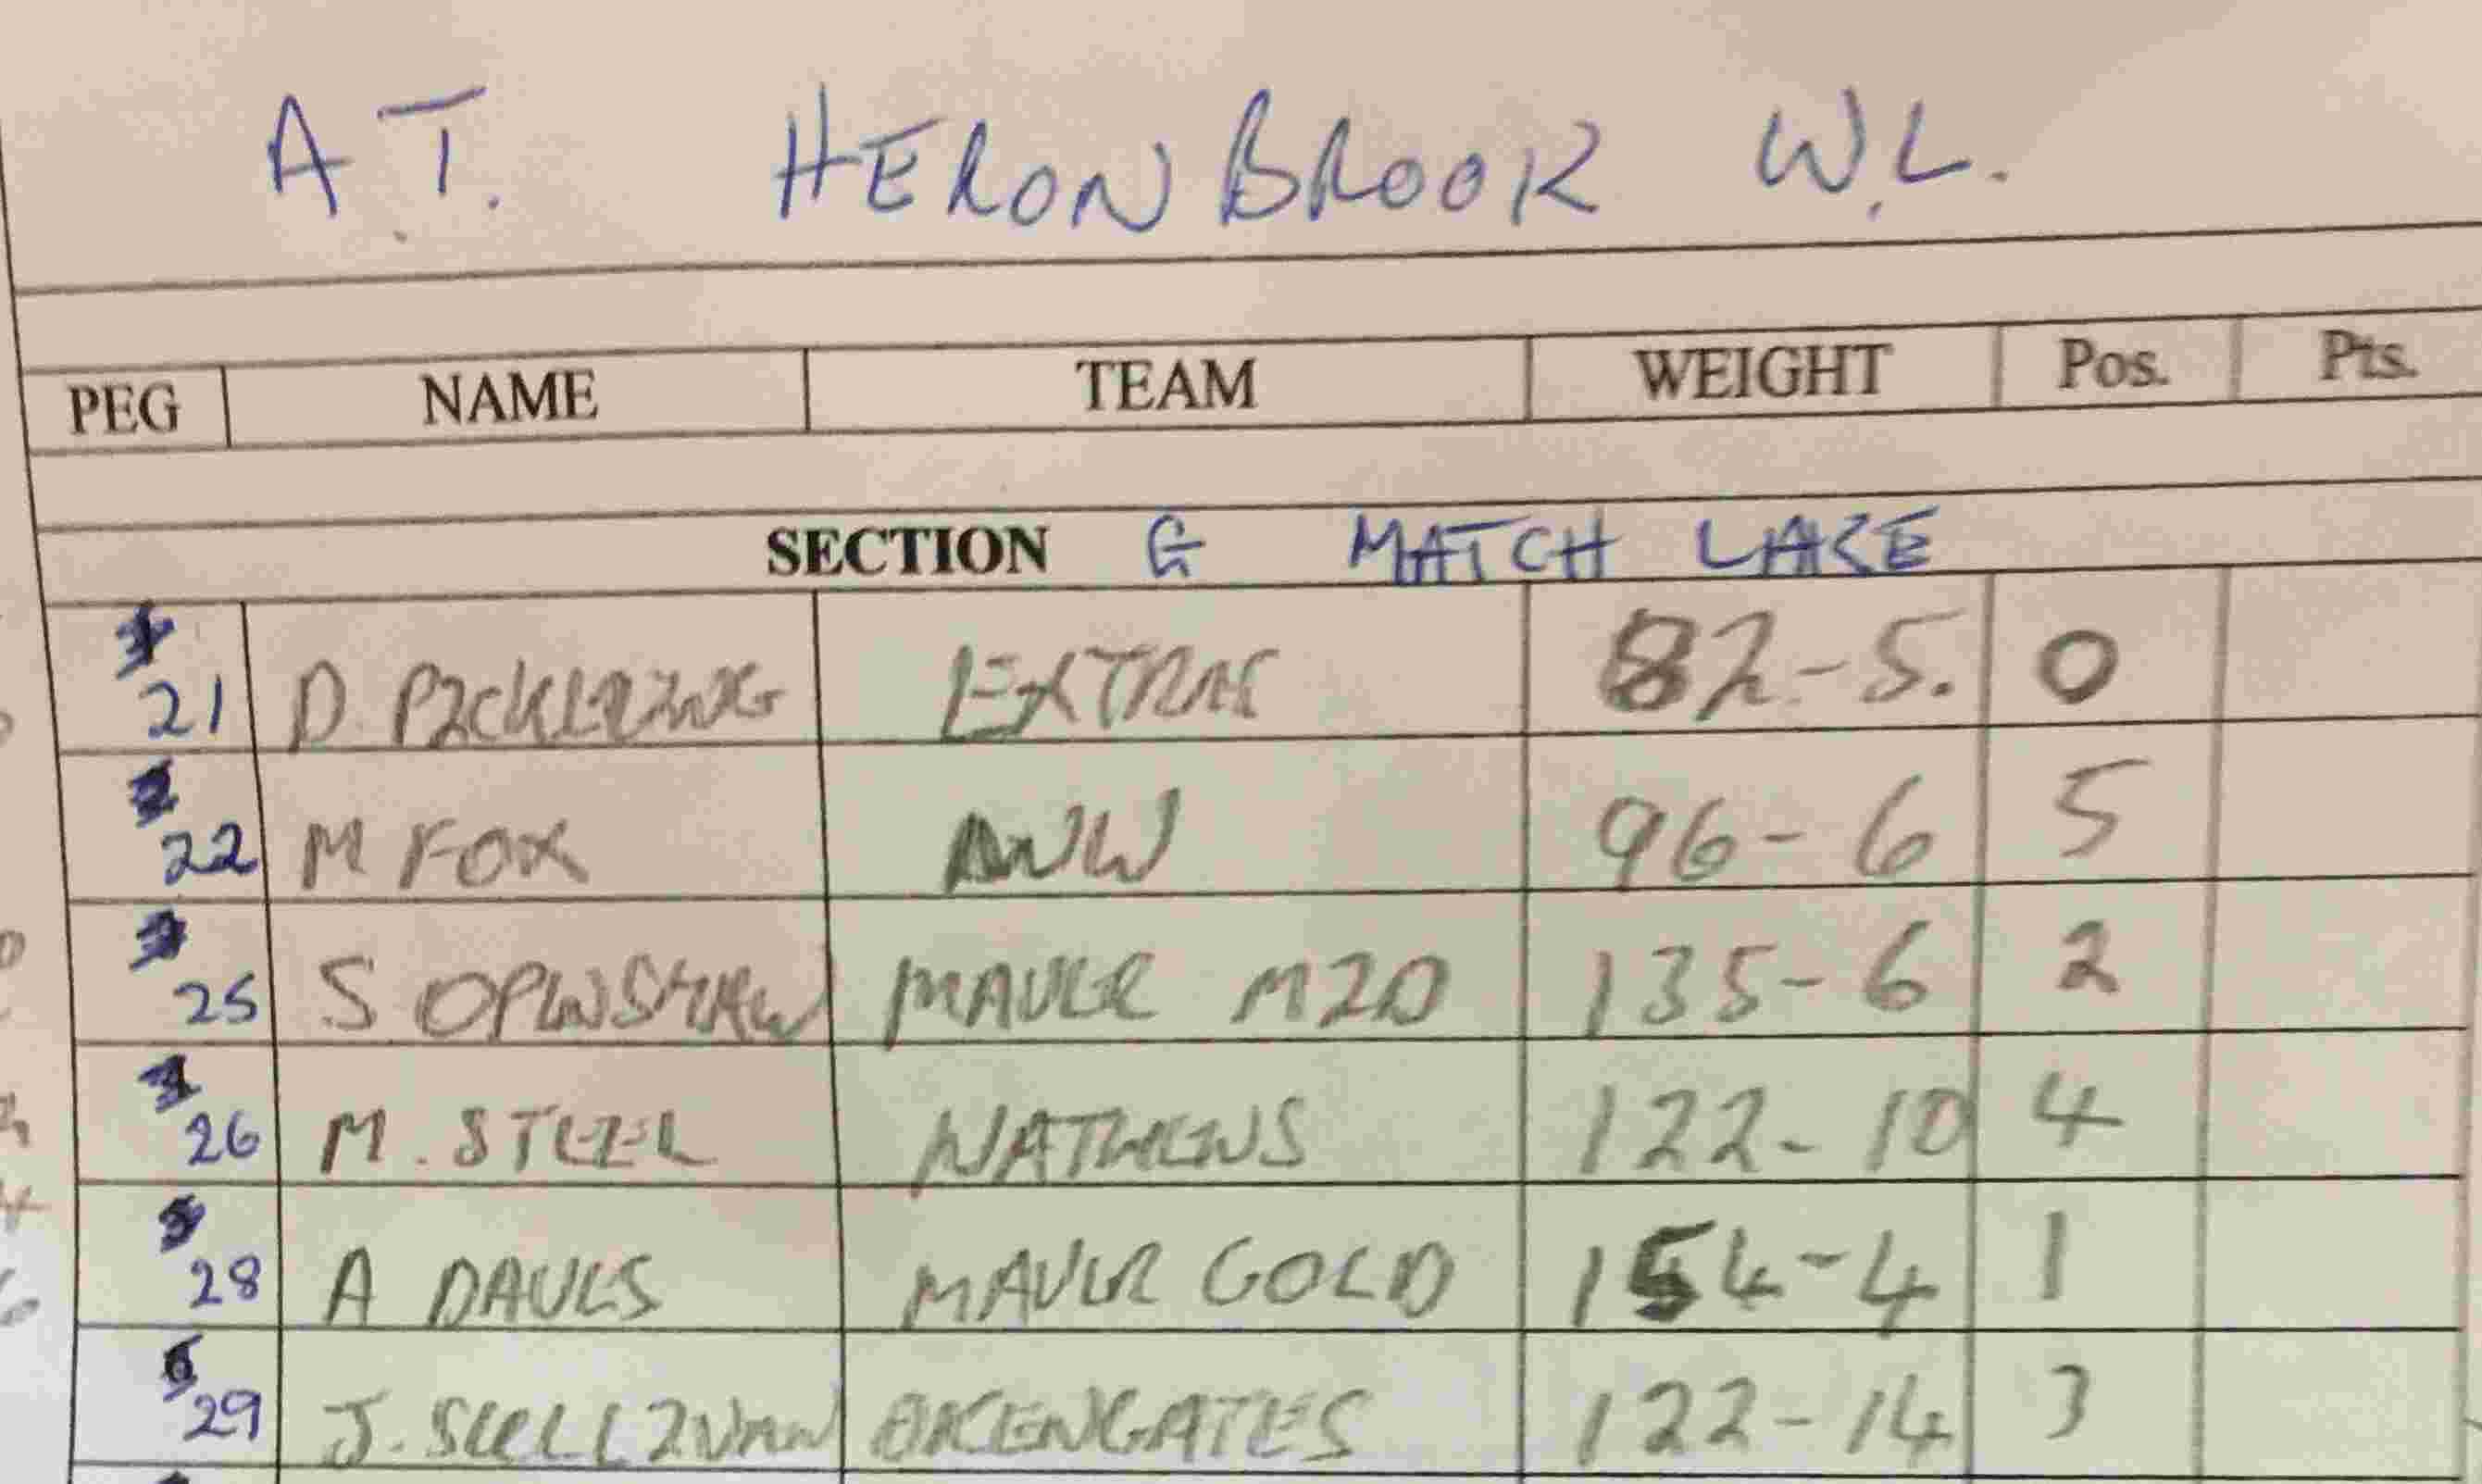 A.T. HERONBROOK W.L.
PEG NAME TEAM WEIGHT Pos. Pts.
SECTION G MATCH LAKE
21 D PICKERING EXTRAS 82-5. 0
22 M FOX 96-6 5
25 S OPENSHAW MAVER MID 135-6 2
26 M. STEEL NATHENS 122-10 4
28 A DAVES MAVER GOLD 154-4 1
29 J. SULLIVAN OKENGATES 122-14 3